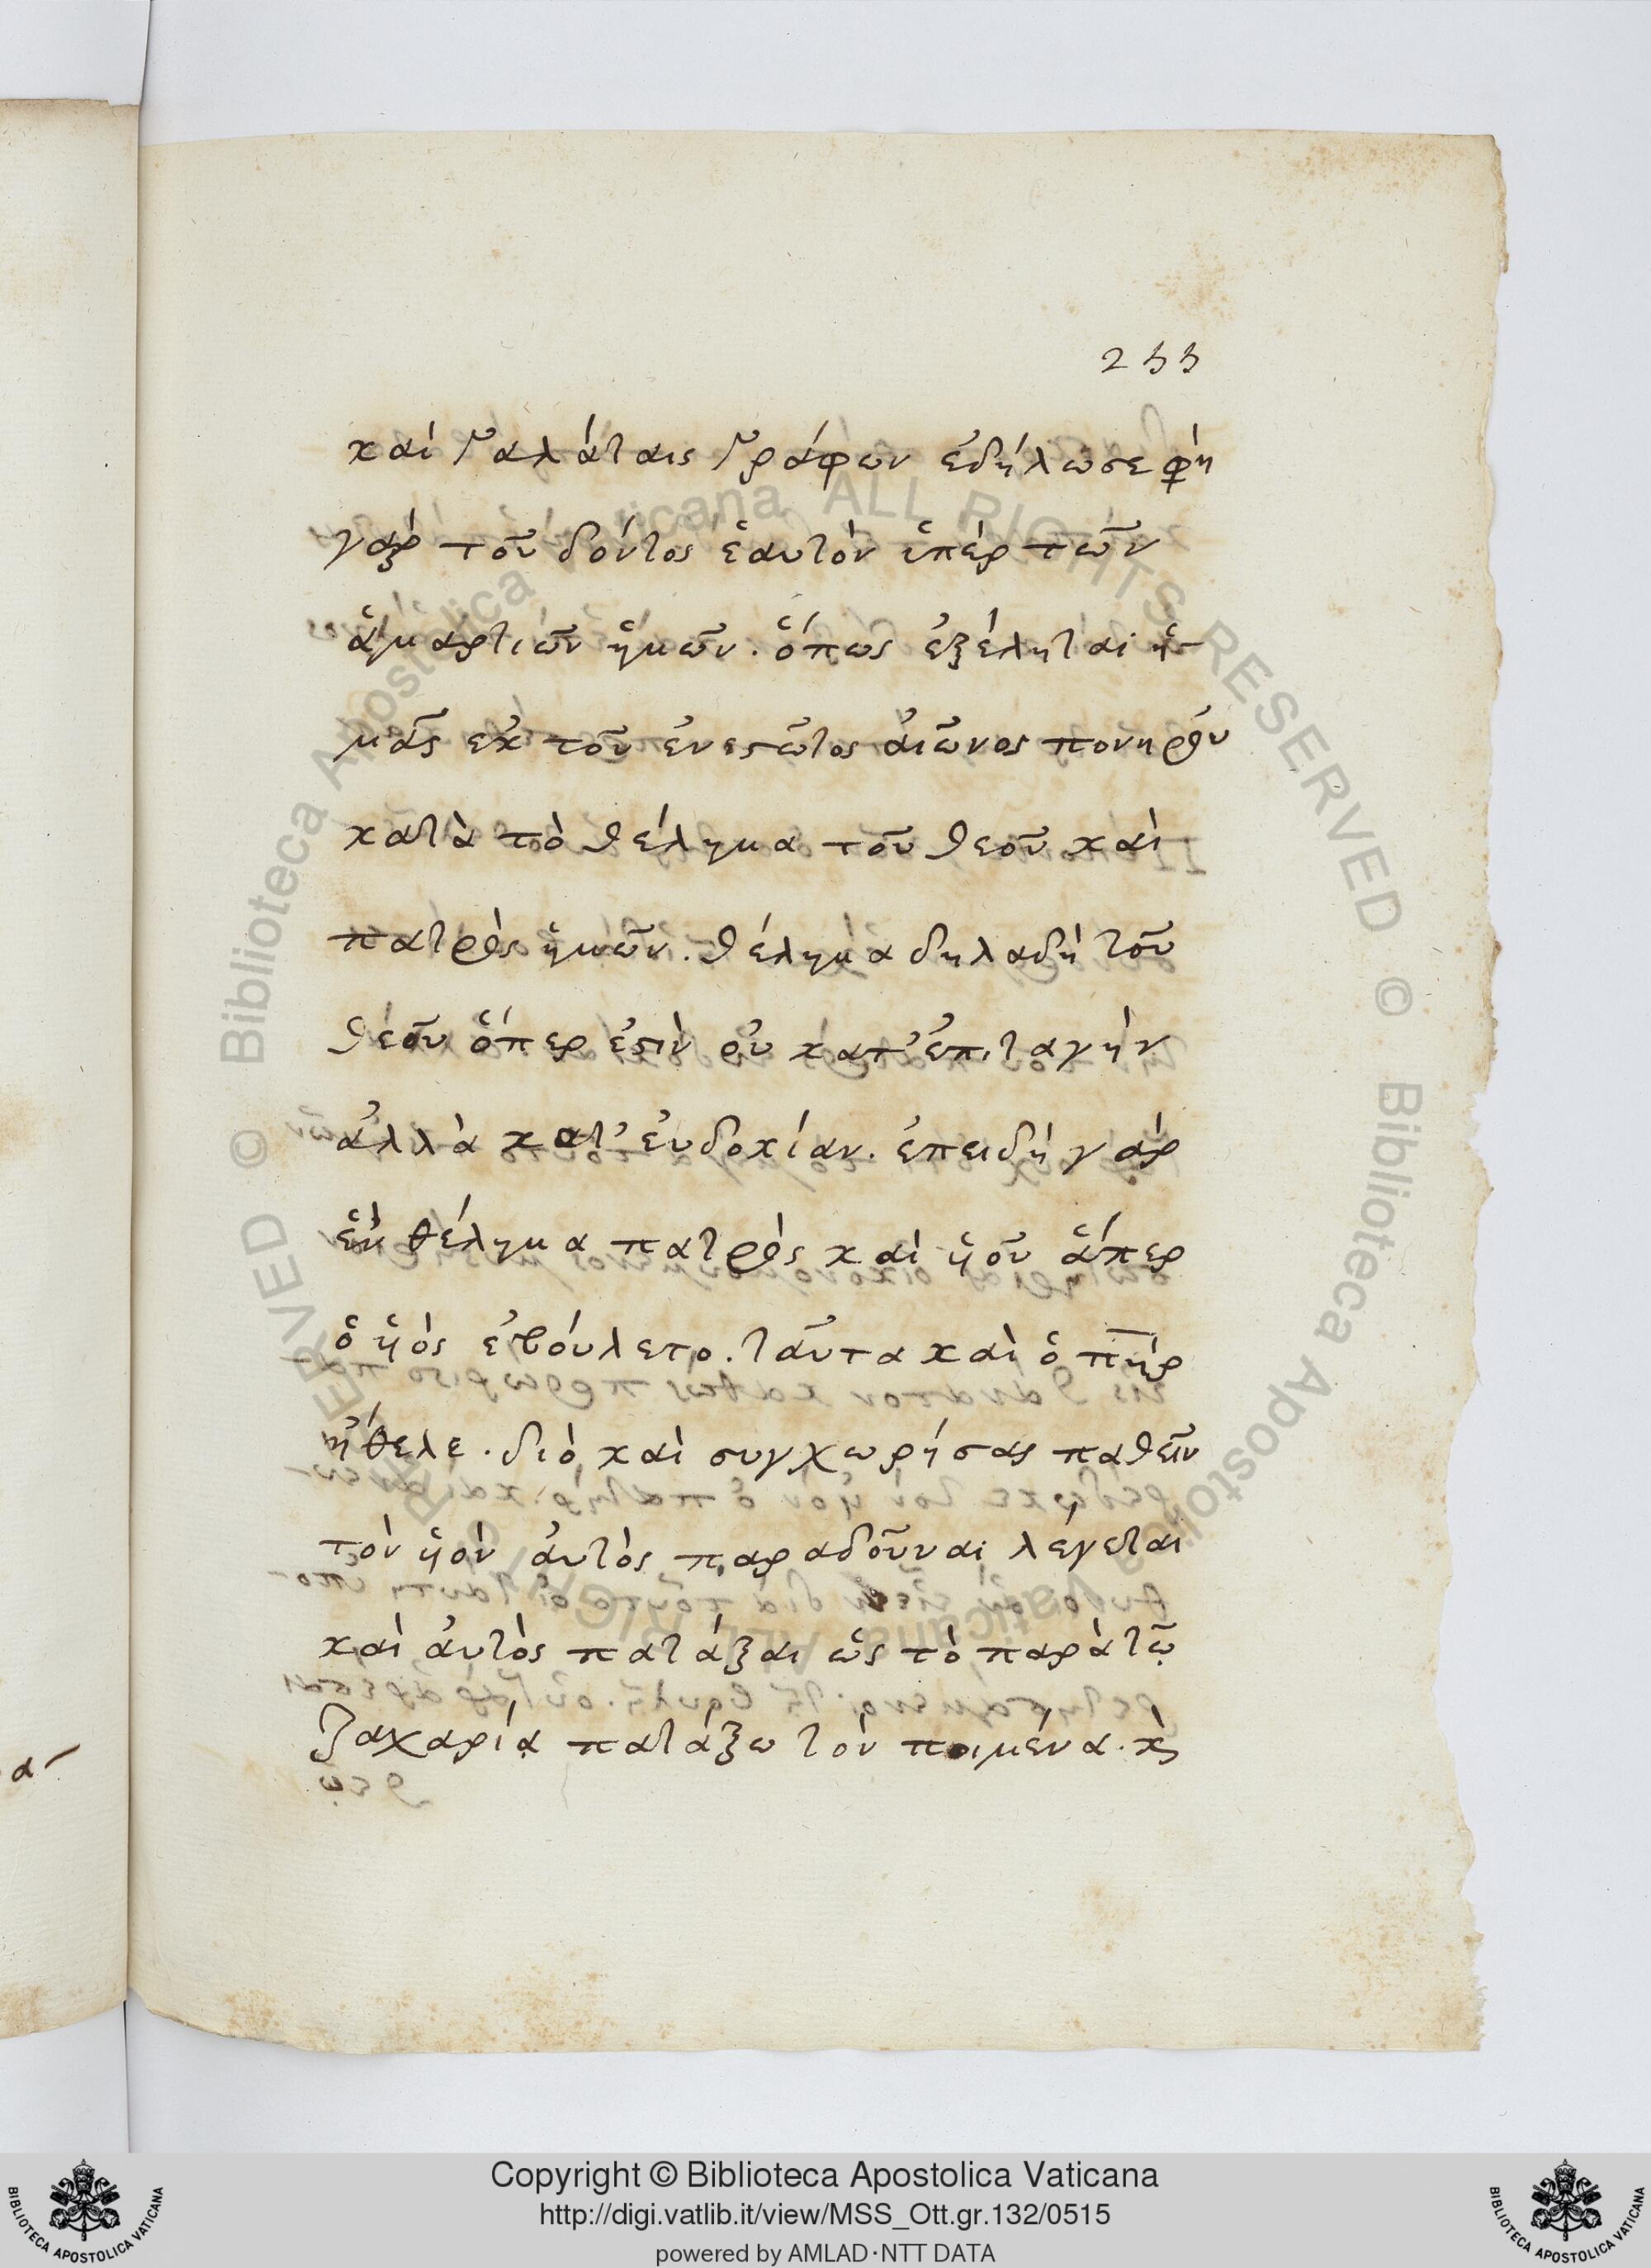 255
καὶ Γαλάταις γράφων ἐδήλωσε φη
γὰρ τοῦ δόντος ἑαυτὸν ὑπὲρ τῶν
ἁμαρτιῶν ἡμῶν. ὅπως ἐξέληται ἡ-
μᾶς εκ τοῦ ἐνεστῶτος ἀιῶνος πονηροῦ
κατὰ τὸ θέλημα τοῦ θεοῦ καὶ
πατρὸς ἡμῶν. θέλημα δηλαδὴ τοῦ
θεοῦ ὅπερ ἐστὶν οὐ κατ' ἐπιταγὴν
ἀλλὰ κατ' ἐυδοκίαν. ἐπειδὴ γὰρ
ἓν θέλημα πατρὸς καὶ ὑοῦ ἅπερ
ὁ ὑὸς ἐβούλετο. ταῦτα καὶ ὁ πηρ
ἤθελε. διὸ καὶ συγχωρήσας παθεῖν
τὸν ὑὸν ἀυτὸς παραδοῦναι λέγεται
καὶ ἀυτὸς πατάξαι ὡς τὸ παρὰ τῷ
Ζαχαρίᾳ πατάξω τὸν ποιμένα. κὶ
Copyright © Biblioteca Apostolica Vaticana
http://digi.vatlib.it/view/MSS_Ott.gr.132/0515
powered by AMLAD·NTT DATA
BIBLIOTECA APOSTOLICA VATICANA
BIBLIOTECA APOSTOLICA VATICANA